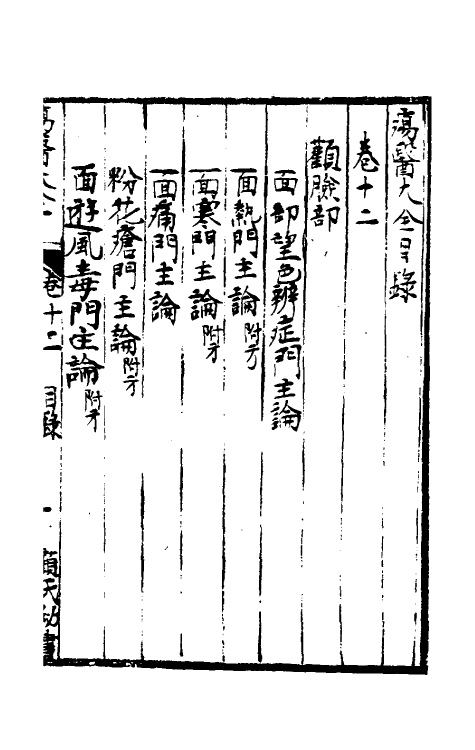 瘍醫大全目錄
卷十二
顴臉部
面部望色辨症門主論
面熱門主論附方
面寒門主論附方
面痛門主論
粉花瘡門主論附方
面遊風毒門主論附方
瘍醫大全 卷十二 目錄 一 顧氏秘書